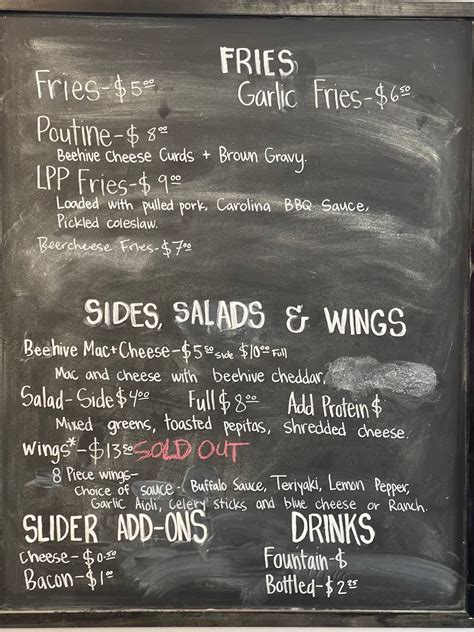 FRIES
Fries-$5.00 Garlic Fries-$6.50
Poutine-$8.00
Beehive Cheese Curds + Brown Gravy.
LPP Fries-$9.00
Loaded with pulled pork, Carolina BBQ Sauce,
Pickled coleslaw.
Beercheese Fries-$7.00
SIDES, SALADS & WINGS
Beehive Mac+Cheese-$5.50 side $10.00 Full
Mac and cheese with beehive cheddar.
Salad-Side $4.00 Full $8.00 Add Protein $
Mixed greens, toasted pepitas, shredded cheese.
Wings*-$13.50 SOLD OUT
8 Piece wings-
Choice of sauce- Buffalo Sauce, Teriyaki, Lemon Pepper,
Garlic Aioli, Celery sticks and blue cheese or Ranch.
SLIDER ADD-ONS DRINKS
Cheese-$0.50 Fountain-$
Bacon-$1.00 Bottled-$2.25